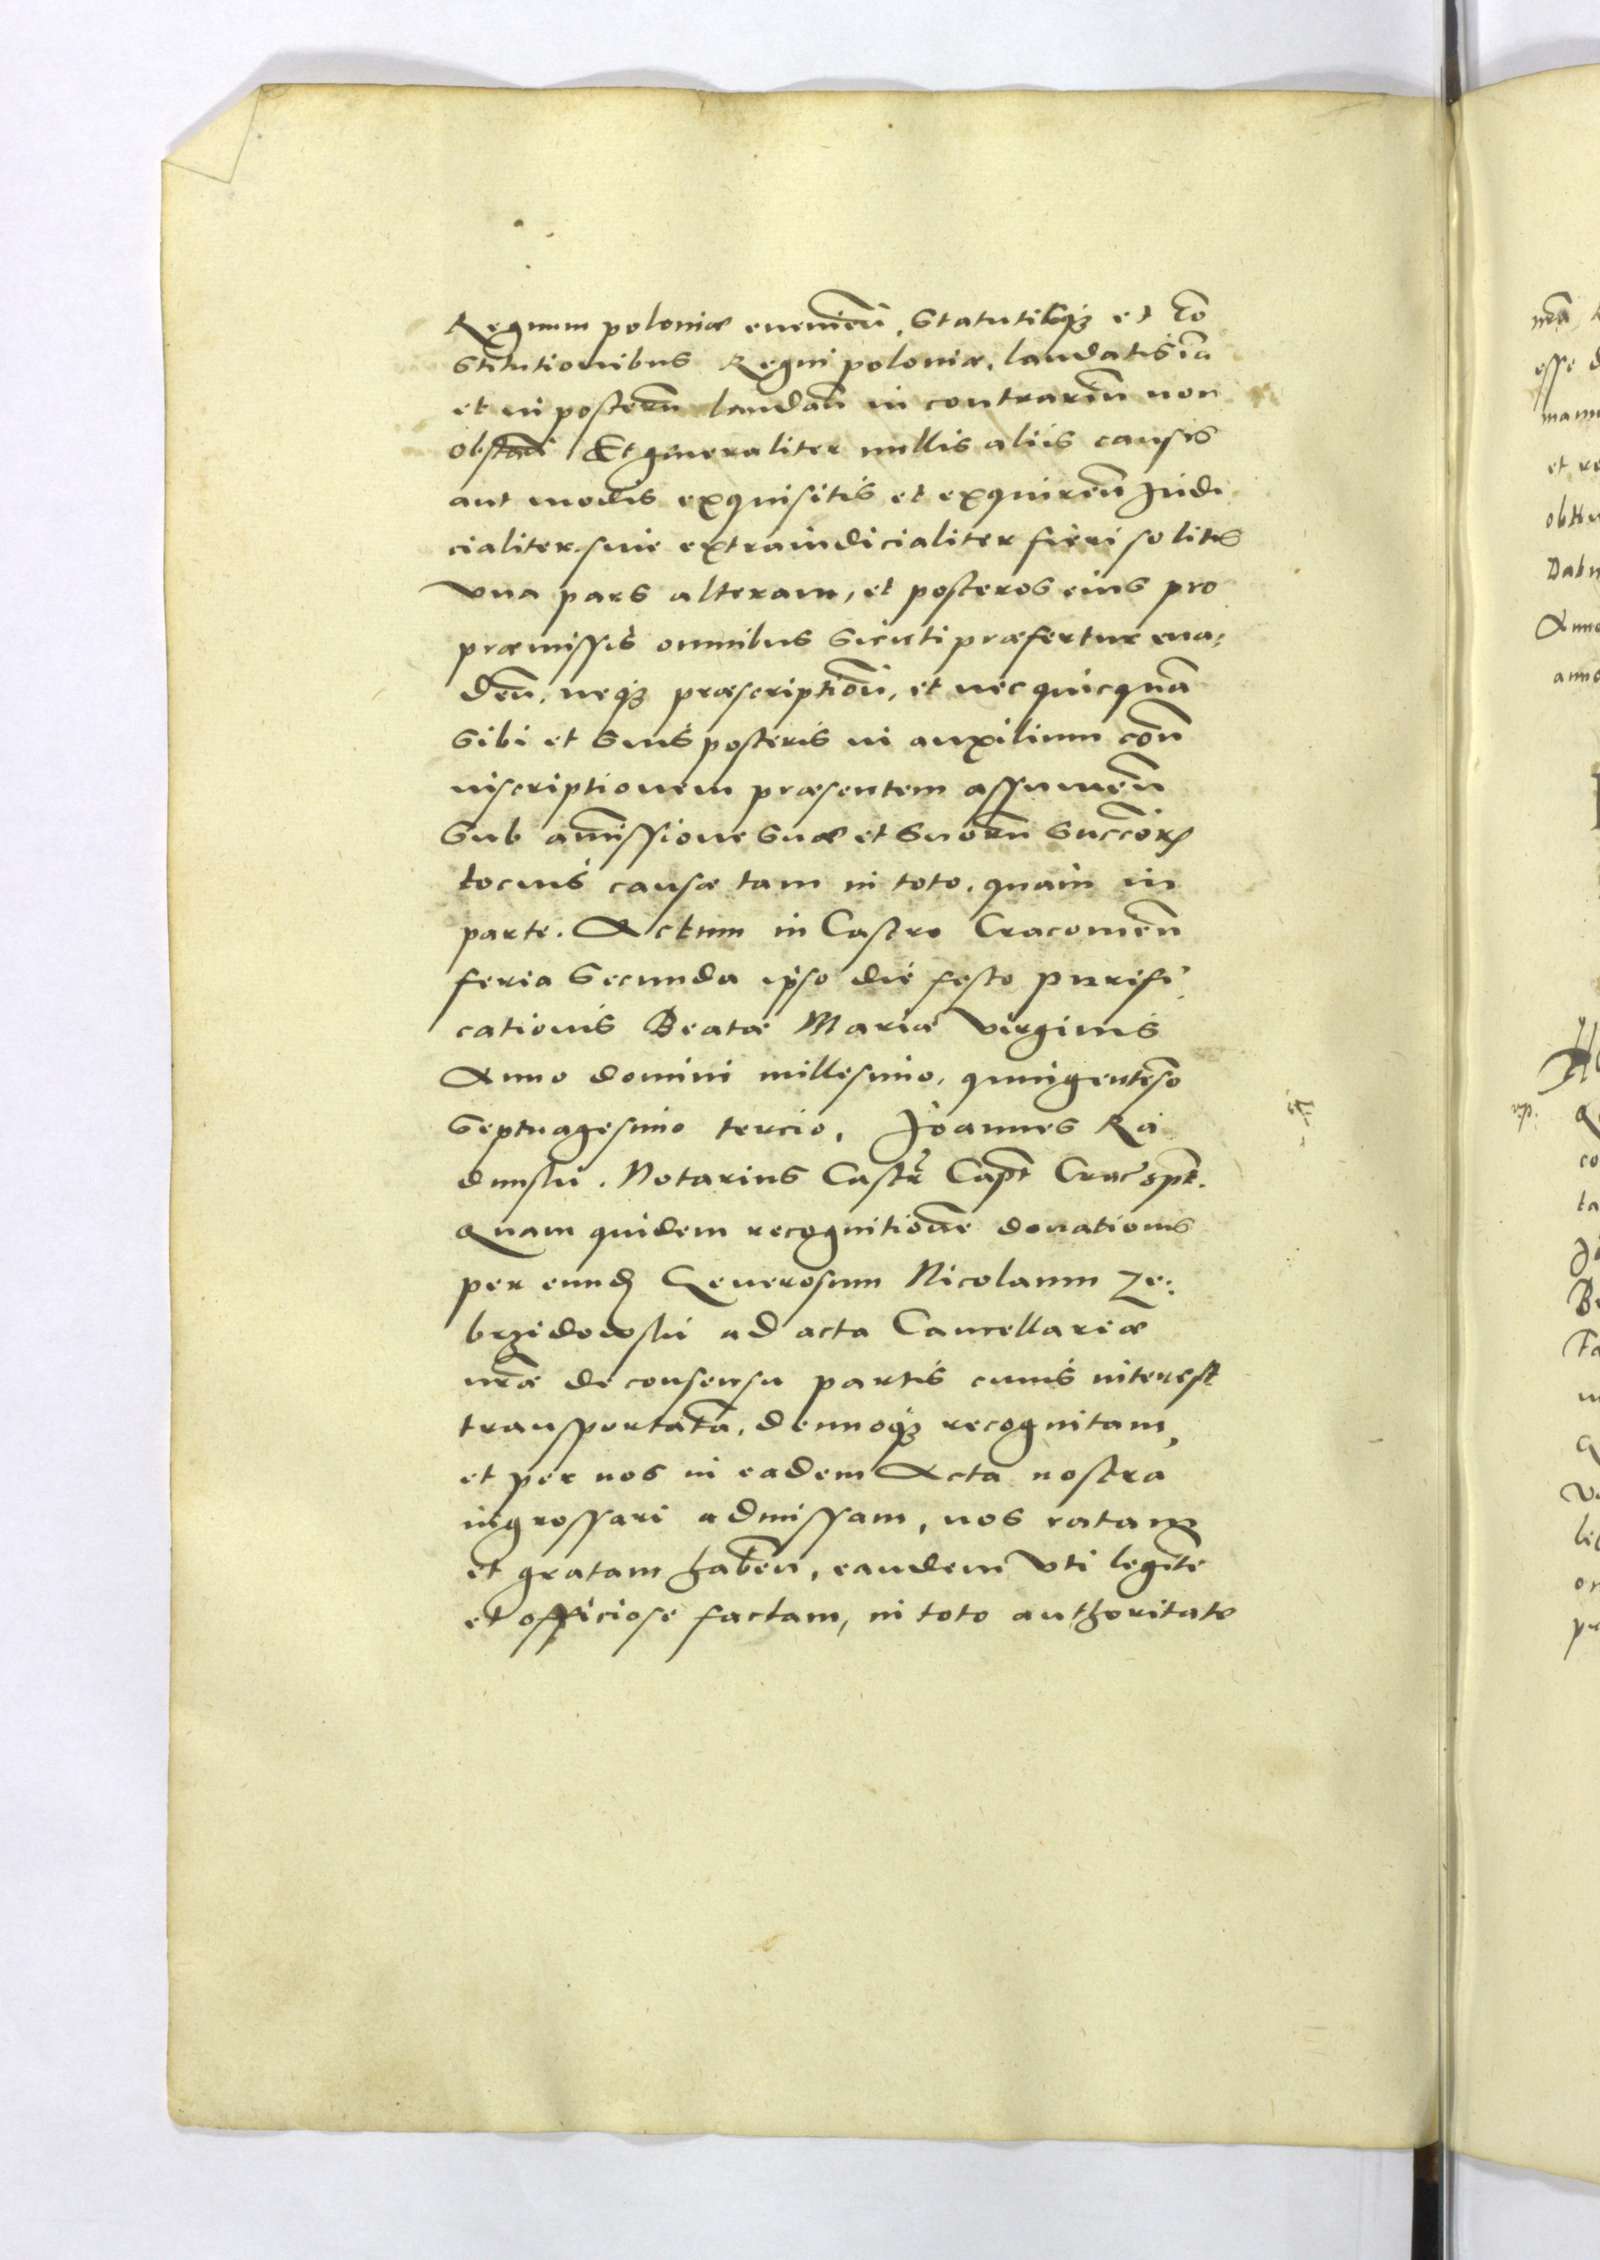 Regnum poloniæ euenień, Statutisq₃ et Cō
stitutionibus Regni poloniæ, laudatis iā
et in posterū laudań in contrariū non
obstań Et generaliter nullis aliis causis
aut modis exquisitis et exquireń Judi
cialiter siue extraiudicialiter fieri solitis
vna pars alteram, et posteros eius pro
præmissis omnibus sicuti præfertur eua,
deń, neq₃ præscriptioń, et nec quicquā
sibi et suis posteris in auxilium coń
inscriptionem præsentem assumeń
Sub amissione suæ et suorū succōrꝝ
tocius causæ tam in toto, quam in
parte. Actum in Castro Cracouień
feria Secunda ipso die festo Purifi
cationis Beatæ Mariæ Virginis
Anno domini millesimo, quingentēso
Septuagesimo tercio, Joannes Ra
dunski. Notarius Castr̃ Capt̃ Crac̃ sp̃t.
Quam quidem recognitionē donationis
per eund̃ Generosum Nicolaum Ze:
brzidowski ad acta Cancellariæ
nr̃æ de consensu partis cuius interest
transportatā, denuoq₃ recognitam,
et per nos in eadem Acta nostra
ingrossari admissam, nos ratam
et gratam habeń, eandem vti legit̃e
et officiose factam, in toto authoritate